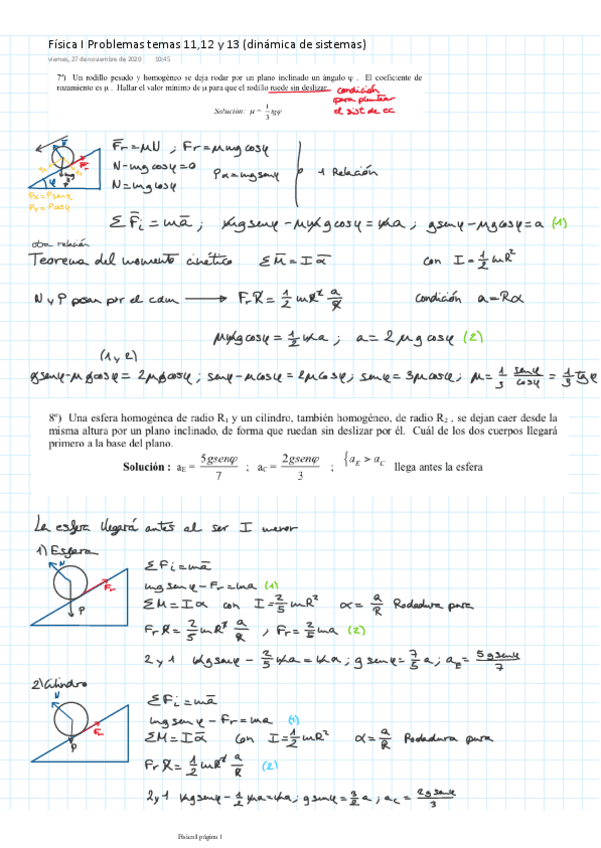 Física I Problemas temas 11,12 y 13 (dinámica de sistemas)
viernes, 27 de noviembre de 2020 10:45
7º) Un rodillo pesado y homogéneo se deja rodar por un plano inclinado un ángulo φ . El coeficiente de
rozamiento es μ . Hallar el valor mínimo de μ para que el rodillo ruede sin deslizar.
condición
para plantear
el sist de ec
Solución: μ = 1/3 tgφ
Fr = μN ; Fr = μmg cosφ
N - mg cosφ = 0
Px = mg senφ
1 Relación
N = mg cosφ
Px = P senφ
Py = P cosφ
ΣFi = ma ; mg senφ - μmg cosφ = ma ; g senφ - μg cosφ = a (1)
otra relación
Teorema del momento cinético ΣM = Iα con I = 1/2 mR²
N y P pasan por el cdm → Fr R = 1/2 mR² a/R Condición a = Rα
μmg cosφ = 1/2 ma ; a = 2μg cosφ (2)
(1 y 2)
g senφ - μg cosφ = 2μg cosφ ; senφ - μcosφ = 2μcosφ ; senφ = 3μcosφ ; μ = 1/3 senφ/cosφ = 1/3 tgφ
8º) Una esfera homogénea de radio R₁ y un cilindro, también homogéneo, de radio R₂ , se dejan caer desde la
misma altura por un plano inclinado, de forma que ruedan sin deslizar por él. Cuál de los dos cuerpos llegará
primero a la base del plano.
Solución : aE = 5gsenφ/7 ; aC = 2gsenφ/3 ; {aE > aC llega antes la esfera
La esfera llegará antes al ser I menor
1) Esfera
N
Fr
P
ΣFi = ma
mg senφ - Fr = ma (1)
ΣM = Iα con I = 2/5 mR² α = a/R Rodadura pura
Fr R = 2/5 mR² a/R ; Fr = 2/5 ma (2)
2 y 1 mg senφ - 2/5 ma = ma ; g senφ = 7/5 a ; aE = 5g senφ/7
2) Cilindro
N
Fr
P
ΣFi = ma
mg senφ - Fr = ma (1)
ΣM = Iα con I = 1/2 mR² α = a/R Rodadura pura
Fr R = 1/2 mR² a/R (2)
2 y 1 mg senφ - 1/2 ma = ma ; g senφ = 3/2 a ; aC = 2g senφ/3
Física I página 1